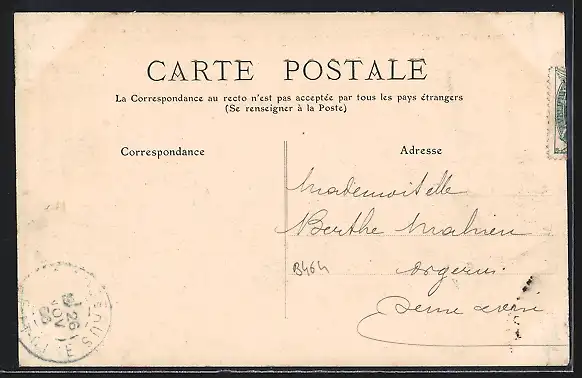 CARTE POSTALE
La Correspondance au recto n'est pas acceptée par tous les pays étrangers
(Se renseigner à la Poste)
Correspondance
Adresse
Mademoiselle
Berthe Mahieu
B464
Orgerus
Seine et Oise
26
NOV